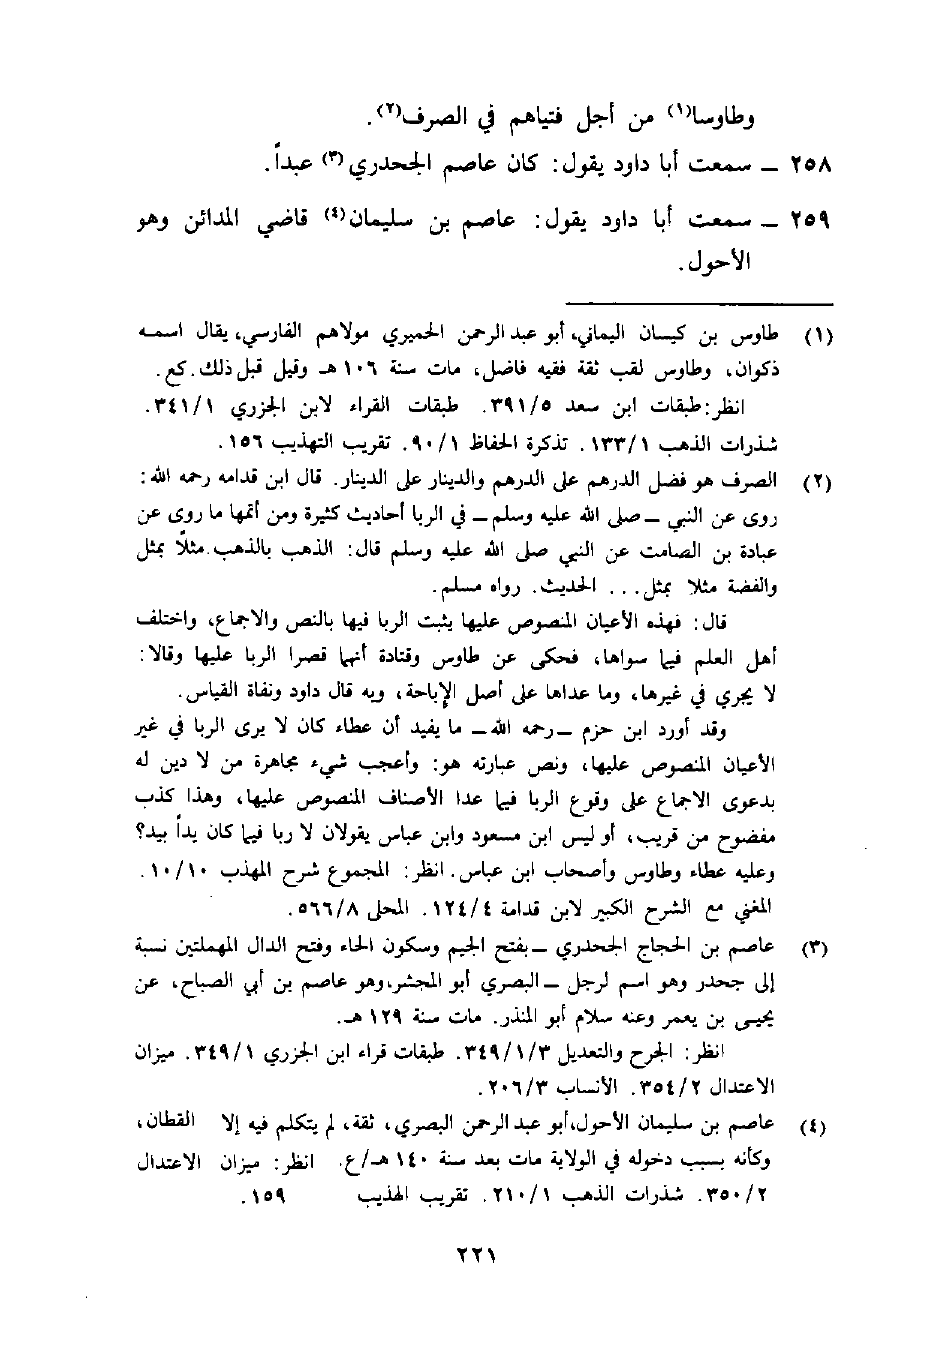 وطاوسا(١) من أجل فتياهم في الصرف(٢).
٢٥٨ ــ سمعت أبا داود يقول: كان عاصم الجحدري(٣) عبداً.
٢٥٩ ــ سمعت أبا داود يقول: عاصم بن سليمان(٤) قاضي المدائن وهو
الأحول.
(١) طاوس بن كيسان اليماني، أبو عبد الرحمن الحميري مولاهم الفارسي، يقال اسمه
ذكوان، وطاوس لقب ثقة فقيه فاضل، مات سنة ١٠٦ هـ وقيل قبل ذلك. كع.
انظر: طبقات ابن سعد ٣٩١/٥. طبقات القراء لابن الجزري ٣٤١/١.
شذرات الذهب ١٣٣/١. تذكرة الحفاظ ٩٠/١. تقريب التهذيب ١٥٦.
(٢) الصرف هو فضل الدرهم على الدرهم والدينار على الدينار. قال ابن قدامه رحمه الله:
روى عن النبي ــ صلى الله عليه وسلم ــ في الربا أحاديث كثيرة ومن أتمها ما روى عن
عبادة بن الصامت عن النبي صلى الله عليه وسلم قال: الذهب بالذهب مثلاً بمثل
والفضة مثلا بمثل... الحديث. رواه مسلم.
قال: فهذه الأعيان المنصوص عليها يثبت الربا فيها بالنص والاجماع، واختلف
أهل العلم فيما سواها، فحكى عن طاوس وقتادة أنهما قصرا الربا عليها وقالا:
لا يجري في غيرها، وما عداها على أصل الإباحة، وبه قال داود ونفاة القياس.
وقد أورد ابن حزم ــ رحمه الله ــ ما يفيد أن عطاء كان لا يرى الربا في غير
الأعيان المنصوص عليها، ونص عبارته هو: وأعجب شيء مجاهرة من لا دين له
بدعوى الاجماع على وقوع الربا فيما عدا الأصناف المنصوص عليها، وهذا كذب
مفضوح من قريب، أو ليس ابن مسعود وابن عباس يقولان لا ربا فيما كان يداً بيد؟
وعليه عطاء وطاوس وأصحاب ابن عباس. انظر: المجموع شرح المهذب ١٠/١٠.
المغني مع الشرح الكبير لابن قدامة ١٢٤/٤. المحلى ٥٦٦/٨.
(٣) عاصم بن الحجاج الجحدري ــ بفتح الجيم وسكون الحاء وفتح الدال المهملتين نسبة
إلى جحدر وهو اسم لرجل ــ البصري أبو المجشر، وهو عاصم بن أبي الصباح، عن
يحيى بن يعمر وعنه سلام أبو المنذر. مات سنة ١٢٩ هـ.
انظر: الجرح والتعديل ٣٤٩/١/٣. طبقات قراء ابن الجزري ٣٤٩/١. ميزان
الاعتدال ٣٥٤/٢. الأنساب ٢٠٦/٣.
(٤) عاصم بن سليمان الأحول، أبو عبد الرحمن البصري، ثقة، لم يتكلم فيه إلا القطان،
وكأنه بسبب دخوله في الولاية مات بعد سنة ١٤٠ هـ/ع. انظر: ميزان الاعتدال
٣٥٠/٢. شذرات الذهب ٢١٠/١. تقريب الهذيب ١٥٩.
٢٢١